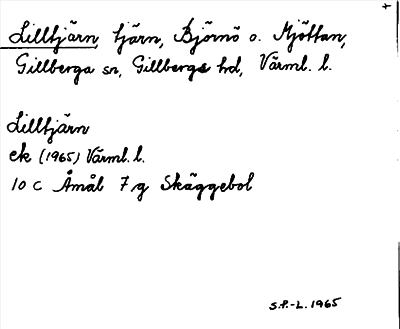 Lilltjärn, tjärn, Björnö o. Mjöttan,
Gillberga sn, Gillbergs hd, Värml. l.
Lilltjärn
ek (1965) Värml. l.
10 C Åmål 7 g Skäggebol
S.P.-L. 1965